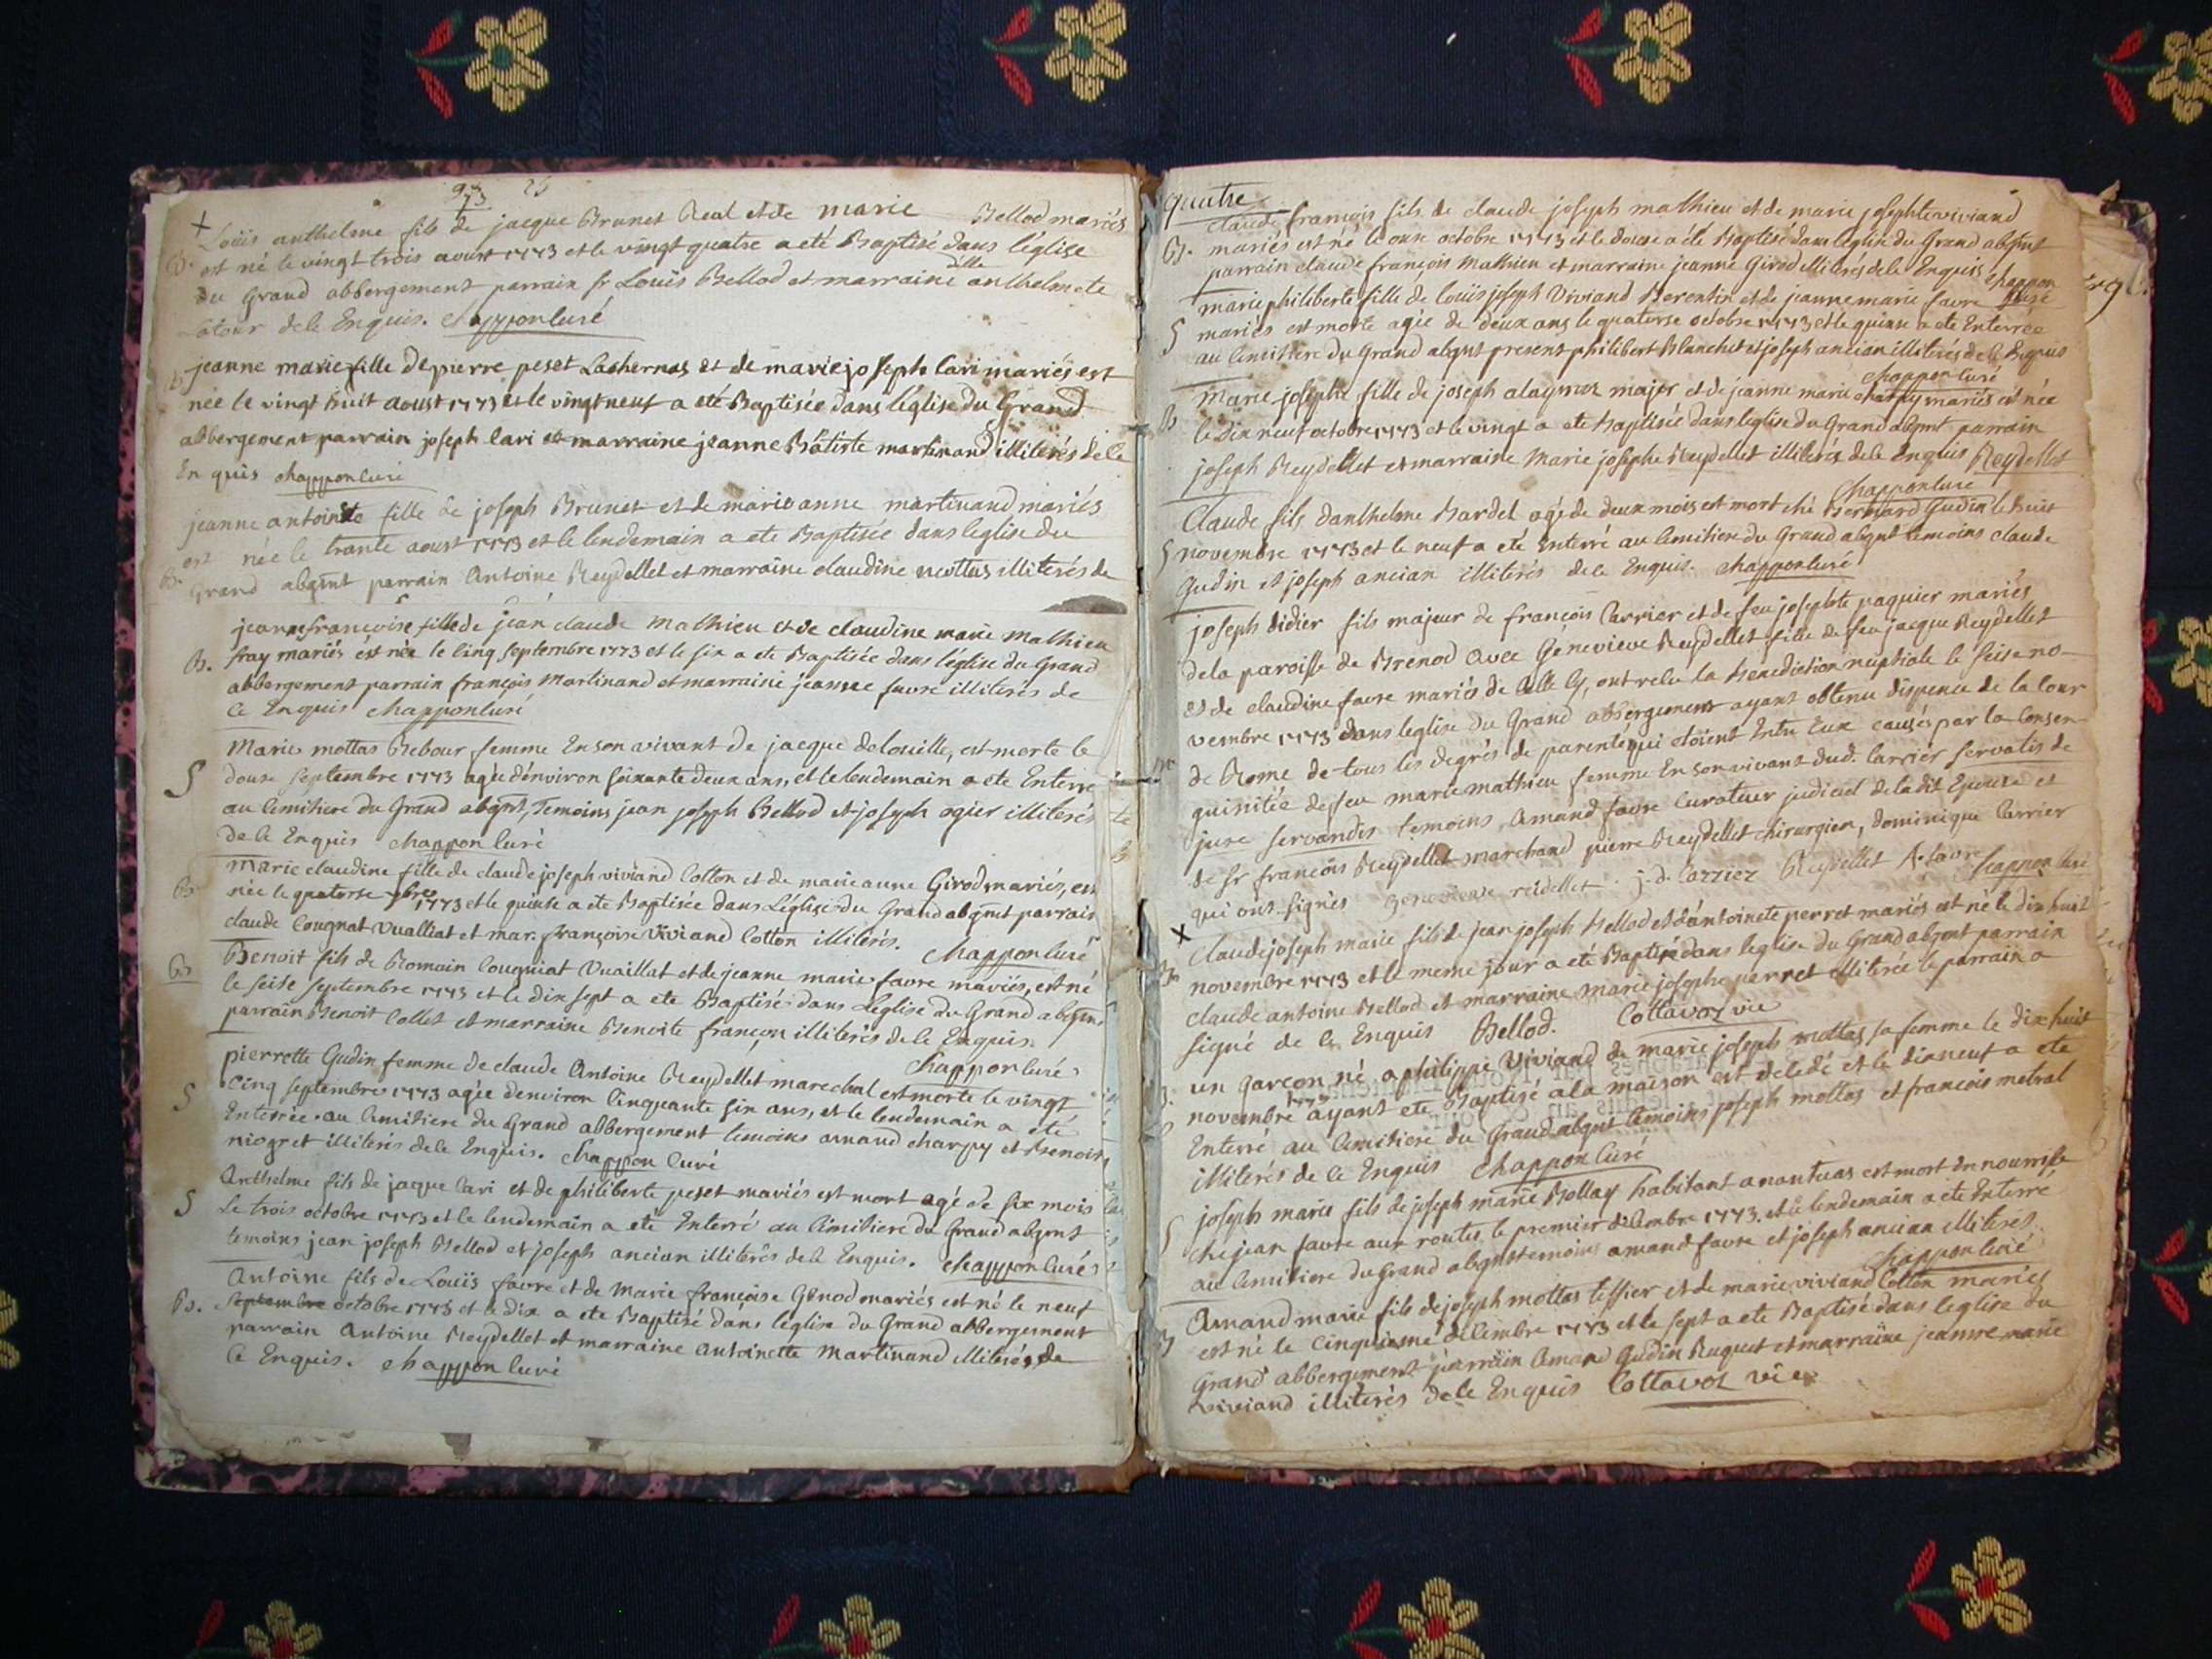 Loüis anthelme fils de jacque Brunet Real et de marie Bellod mariés
est né le vingt trois aoust 1773 et le vingt quatre a eté Baptisé dans l'église
du Grand abbergement parrain sr Louïs Bellod et marraine dlle anthelmete
Latour de ce Enquis. Chappon Curé
jeanne marie fille de pierre peset Lachernas et de marie joseph Cari mariés est
née le vingt huit aoust 1773 et le vingt neuf a eté Baptisée dans l'église du Grand
abbergement parrain joseph Cari et marraine jeanne Bâtiste martinand illiterés de ce
Enquis Chappon Curé
jeanne antointe fille de joseph Brunet et de marie anne martinand mariés
est née le trante aoust 1773 et le lendemain a ete Baptisée dans leglise du
Grand abgmt parrain Antoine Reydellet et marraine claudine mottas illiterés de
jeanne françoise fille de jean claude Mathieu et de claudine marie Mathieu
fray mariés est née le cinq septembre 1773 et le six a ete Baptisée dans l'église du Grand
abbergement parrain françois Martinand et marraine jeanne favre illiterés de
ce Enquis Chappon Curé
Marie mottas Rebour femme En son vivant de jacque delouille, est morte le
douse septembre 1773 agée d'environ soixante deux ans, et le lendemain a ete Enterré
au Cimitiere du Grand abgmt, Temoins jean joseph Bellod et joseph ogier illiterés
de ce Enquis Chappon Curé
Marie claudine fille de claude joseph viviand Cotton et de marie anne Girod mariés, est
née le quatorse 7bre 1773 et le quinse a ete Baptisée dans L'église du Grand abgmt parrain
claude Cougnat Vualliat et mar. françoise Viviand Cotton illiterés. Chappon Curé
Benoit fils de Romain Cougniat Vuaillat et de jeanne marie favre mariés, est né
le seise septembre 1773 et le dix sept a ete Baptisé dans L'église du Grand abgm.
parrain Benoit Collet et marraine Benoite françon illiterés de ce Enquis.
Chappon Curé
pierrette Gudin femme de claude Antoine Reydellet marechal est morte le vingt
cinq septembre 1773 agée d'environ Cinquante six ans, et le lendemain a eté
Enterrée au Cimitiere du Grand abbergement temoins amand charpy et Benoit
niogret illiterés de ce Enquis. Chappon Curé
Anthelme fils de jacque Cari et de philiberte peset mariés est mort agé de six mois
Le trois octobre 1773 et le lendemain a eté Enterré au Cimitiere du Grand abgmt
temoins jean joseph Bellod et joseph ancian illiterés de ce Enquis. Chappon Curé
Antoine fils de Louïs favre et de Marie françoise Genod mariés est né le neuf
septembre octobre 1773 et le dix a ete Baptisé dans l'église du Grand abbergement
parrain Antoine Reydellet et marraine antoinette Martinand illiterés de
Ce Enquis. Chappon Curé
quatre
claude françois fils de claude joseph mathieu et de marie josephte viviand
mariés est né le onze octobre 1773 et le douse a été Baptisé dans l'eglise du Grand abgmt
parrain claude françois Mathieu et marraine jeanne Girod illiterés de ce Enquis Chappon
Curé
marie philiberte fille de loüis joseph Viviand Borentin et de jeanne marie favre
mariés est morte agée de deux ans le quatorse octobre 1773 et le quinse a ete Enterrée
au Cimitiere du Grand abgmt present philibert Blanchet et joseph ancian illiterés de ce Enquis
Chappon Curé
Marie josephe fille de joseph alaymoz major et de jeanne marie charpy mariés est née
le dix neuf octobre 1773 et le vingt a ete Baptisée dans l'eglise du Grand abgmt parrain
joseph Reydellet et marraine Marie josephe Reydellet illiterée de ce Enquis Reydellet
Chappon Curé
Claude fils danthelme Bardet agé de deux mois est mort ché Bernard Gudin le huit
novembre 1773 et le neuf a eté Enterré au Cimitiere du Grand abgmt temoins claude
Gudin et joseph ancian illiterés de ce Enquis. Chappon Curé
joseph didier fils majeur de françois Carrier et de feu josephte paquier mariés
de la paroisse de Brenod avec Génevieve Reydellet fille de feu jacque Reydellet
et de claudine favre mariés de Celle Cy, ont reçu la Benediction nuptiale le seise no-
vembre 1773 dans l'eglise du Grand abbergement ayant obtenu dispence de la Cour
de Rome de tous les degrés de parenté qui etoient Entre Eux causés par la Consen-
guinitée de feu marie mathieu femme En son vivant dud. Carrier servatis de
jure servandis temoins amand favre Curateur judiciel de la dit Epouse et
de sr françois Reydellet marchand pierre Reydellet chirurgien, dominique Carrier
qui ont signés genevieve reidellet. j. d. Carrier Reydellet A. favre Chappon Curé
Claude joseph marie fils de jean joseph Bellod et d'antoinete perret mariés est né le dix huit
novembre 1773 et le meme jour a eté Baptisé dans leglise du Grand abgmt parrain
claude antoine Bellod et marraine marie josephe perret illiterée le parrain a
signé de ce Enquis Bellod. Cottavoz vic
un garçon né a philippe Viviand de marie joseph mottas sa femme le dix huit
novembre 1773 ayant ete Baptisé a la maison est decedé et le dixneuf a ete
Enterré au Cimitiere du Grand abgmt temoins joseph mottas et francois metral
illiterés de ce Enquis Chappon Curé
joseph marie fils de joseph marie Bollay habitant a nantuas est mort en nourrisse
ché jean favre aux routes, le premier decembre 1773. et le lendemain a ete Enterré
au Cimitiere du Grand abgmt temoins amand favre et joseph ancian illiterés.
Chappon Curé
Amand marie fils de joseph mottas tissier et de marie viviand Cotton mariés
est né le cinquieme decembre 1773 et le sept a ete Baptisé dans l'eglise du
Grand abbergement parrain Amand Gudin Ruguet et marraine jeanne marie
viviand illiterés de ce Enquis Cottavoz vic